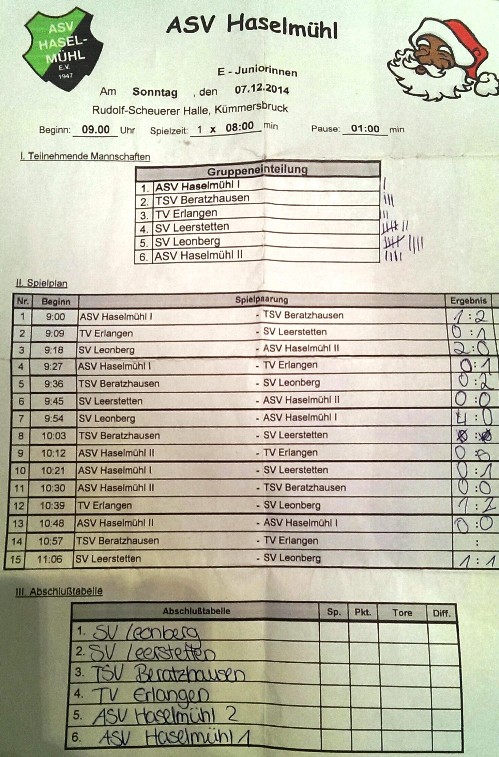 ASV
HASEL-
MÜHL
E.V.
1947
ASV Haselmühl
E - Juniorinnen
Am Sonntag , den 07.12.2014
Rudolf-Scheuerer Halle, Kümmersbruck
Beginn: 09.00 Uhr Spielzeit: 1 x 08:00 min Pause: 01:00 min
I. Teilnehmende Mannschaften
Gruppeneinteilung
1. ASV Haselmühl I
2. TSV Beratzhausen
3. TV Erlangen
4. SV Leerstetten
5. SV Leonberg
6. ASV Haselmühl II
II. Spielplan
Nr. Beginn Spielpaarung Ergebnis
1 9:00 ASV Haselmühl I - TSV Beratzhausen 1:2
2 9:09 TV Erlangen - SV Leerstetten 0:1
3 9:18 SV Leonberg - ASV Haselmühl II 2:0
4 9:27 ASV Haselmühl I - TV Erlangen 0:1
5 9:36 TSV Beratzhausen - SV Leonberg 0:2
6 9:45 SV Leerstetten - ASV Haselmühl II 0:0
7 9:54 SV Leonberg - ASV Haselmühl I 4:0
8 10:03 TSV Beratzhausen - SV Leerstetten :
9 10:12 ASV Haselmühl II - TV Erlangen 0:0
10 10:21 ASV Haselmühl I - SV Leerstetten 0:1
11 10:30 ASV Haselmühl II - TSV Beratzhausen 0:0
12 10:39 TV Erlangen - SV Leonberg 1:2
13 10:48 ASV Haselmühl II - ASV Haselmühl I 0:0
14 10:57 TSV Beratzhausen - TV Erlangen :
15 11:06 SV Leerstetten - SV Leonberg 1:1
III. Abschlußtabelle
Abschlußtabelle Sp. Pkt. Tore Diff.
1. SV Leonberg
2. SV Leerstetten
3. TSV Beratzhausen
4. TV Erlangen
5. ASV Haselmühl 2
6. ASV Haselmühl 1